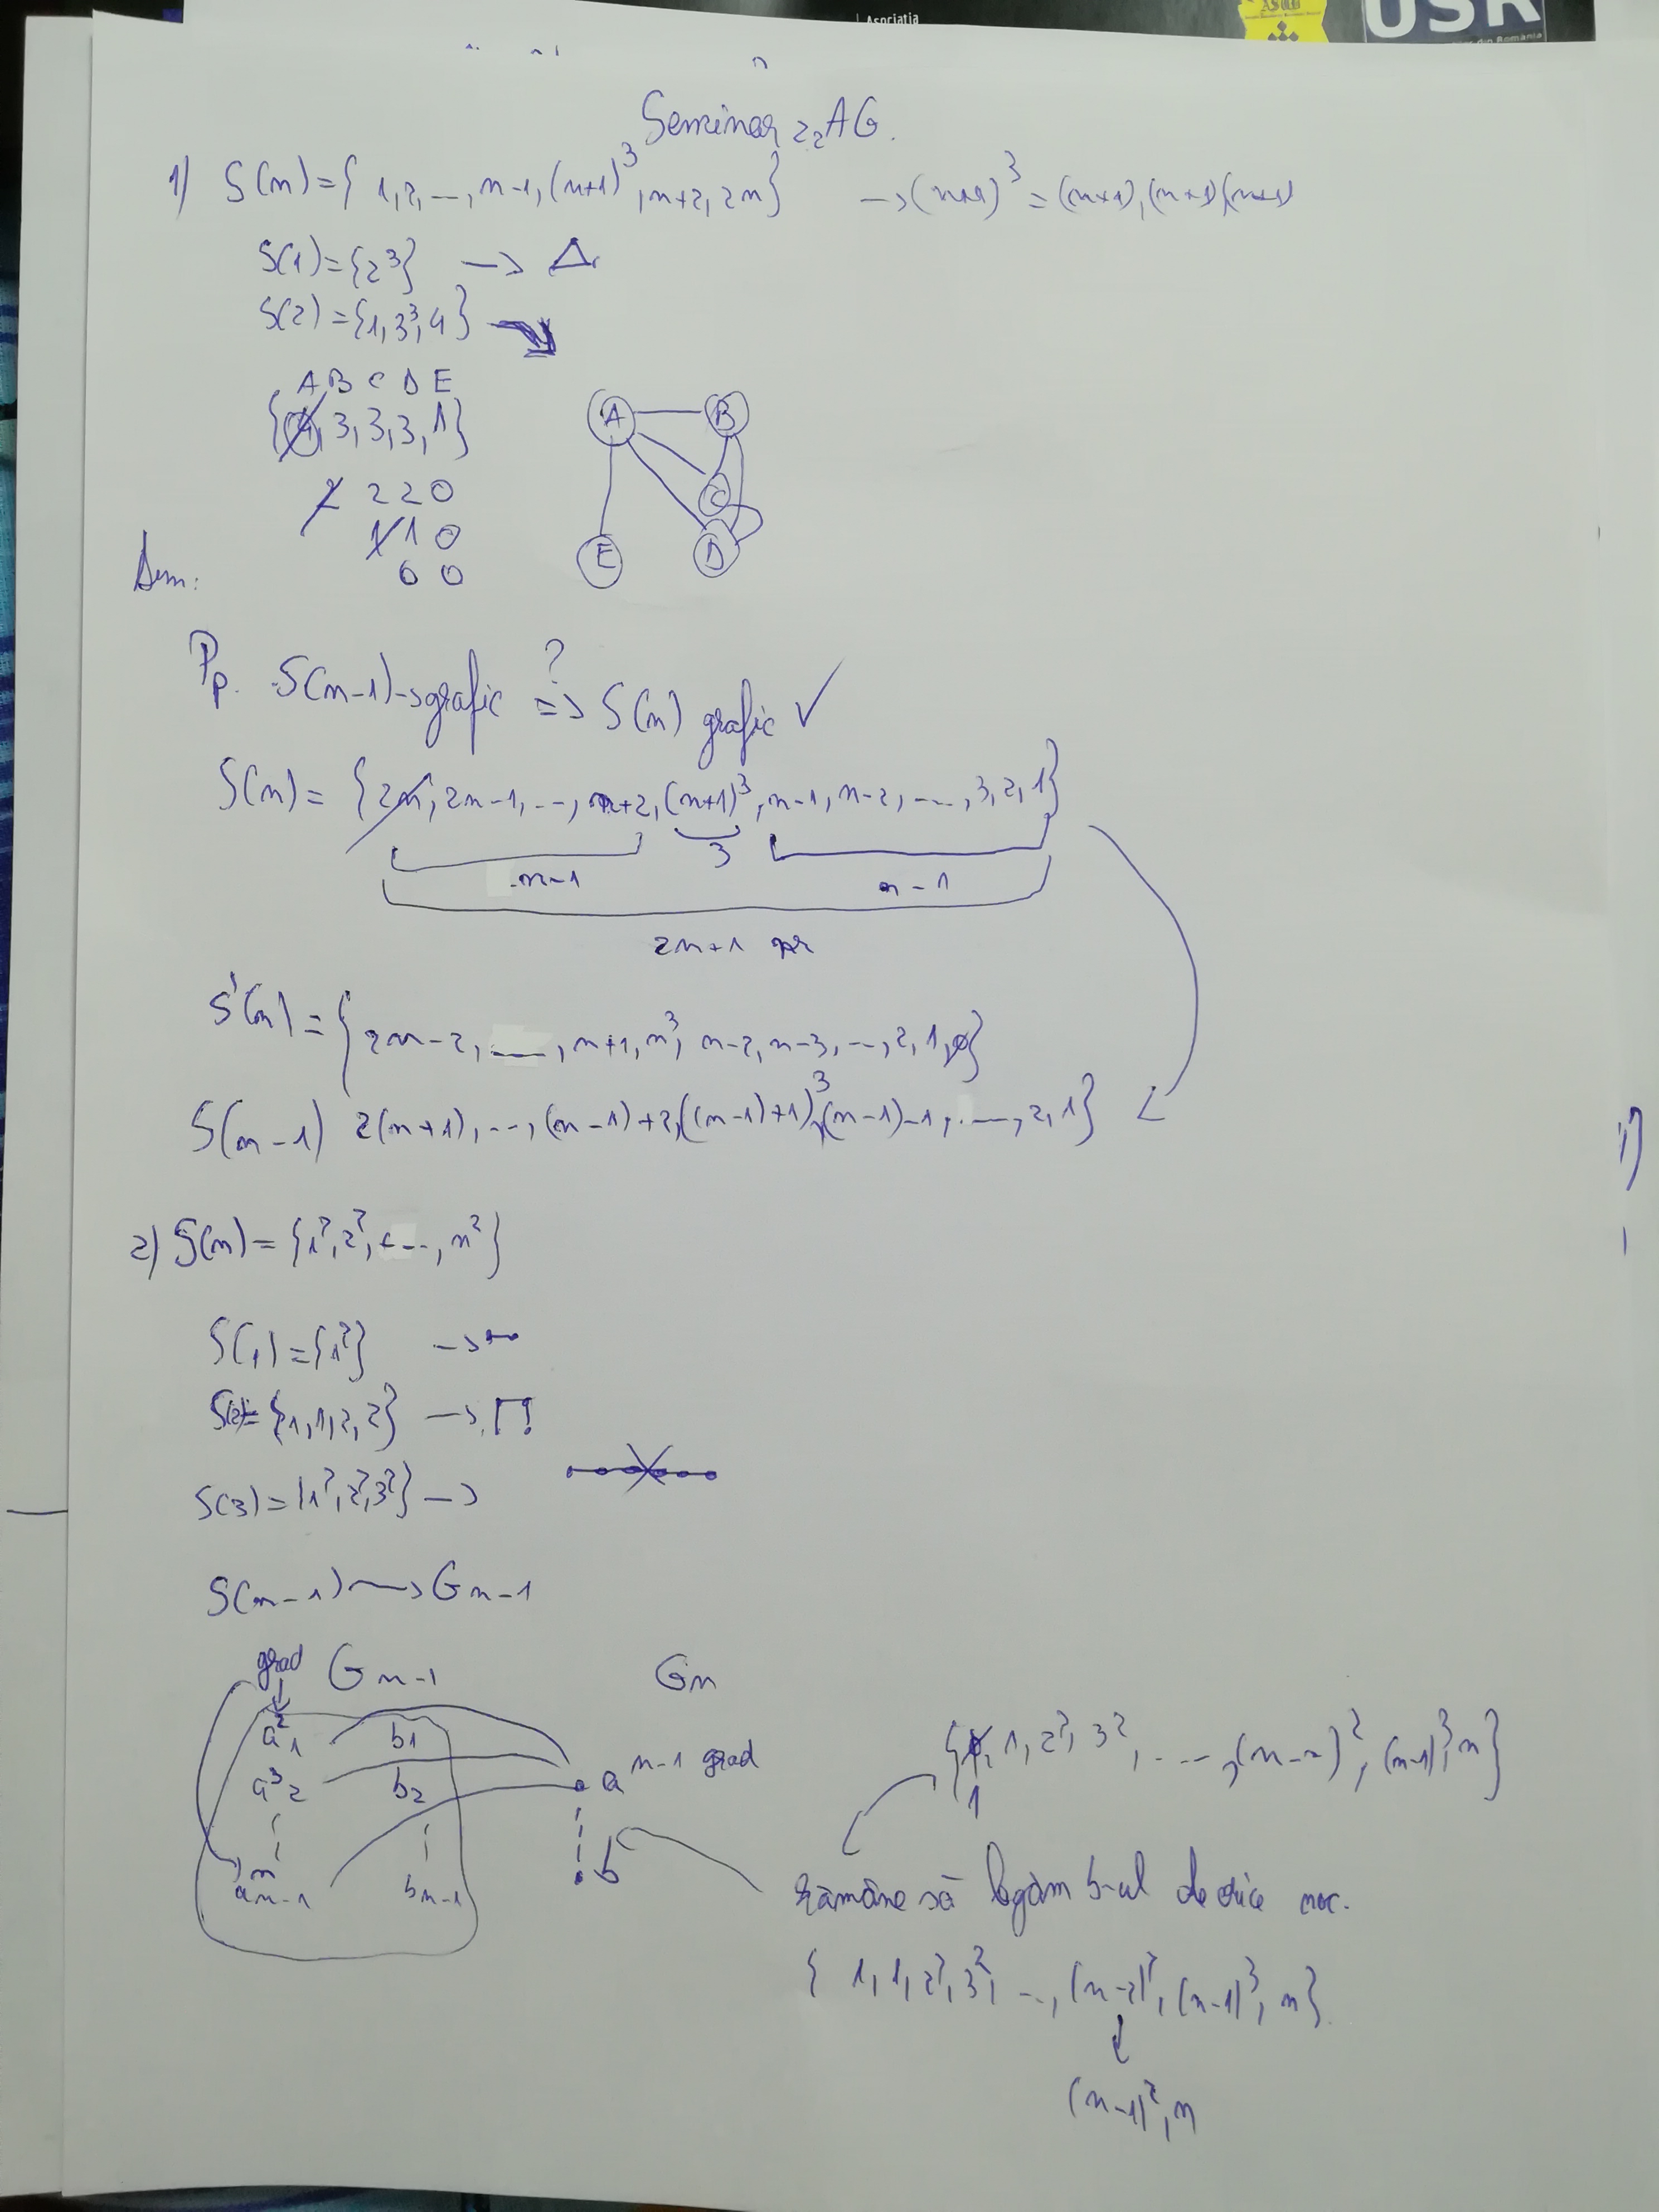 Asociatia
USR
din România
Seminar 2 AG.
1) S(n)={1,2,...,n-1,(n+1)³,n+2,2n} → (n+1)³=(n+1),(n+1)(n+1)
S(1)={2³} → Δ
S(2)={1,3³,4}
A B C D E
{4,3,3,3,1}
2 2 2 0
1 1 0
0 0
A B
C
E D
Dem:
Pp. S(n-1)→grafic ?=> S(n) grafic ✓
S(n) = {2n, 2n-1, ..., n+2, (n+1)³, n-1, n-2, ..., 3, 2, 1}
n-1 3 n-1
2n+1
S'(n) = {2n-2, ..., n+1, n³, n-2, n-3, ..., 2, 1, 0}
S(n-1) 2(n+1), ..., (n-1)+2, ((n-1)+1)³, (n-1)-1, ..., 2, 1}
2) S(n) = {1², 2², ..., n²}
S(1) = {1²} →
S(2)= {1,1,2,2} →
S(3) = {1², 2², 3²} →
S(n-1) → Gn-1
grad Gn-1 Gn
a²1 b1
a³2 b2
a n-1 grad
aⁿn-1 bn-1
b
{0, 1, 2², 3², ..., (n-2)², (n-1)³, n}
1
rămâne să legăm b-ul de orice
{1, 1, 2², 3², ..., (n-2)², (n-1)³, n}
(n-1)², n